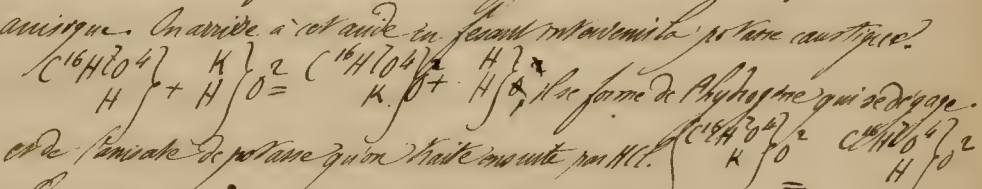 anisique. On arrive à cet acide en fesant intervenir la potasse caustique.
C¹⁶H⁷O⁴ } H } + K } H } O² = C¹⁶H⁷O⁴ } K } O² + H } H }, il se forme de l'hydrogène qui se dégage.
et de l'anisate de potasse qu'on traite ensuite par HCl. C¹⁶H⁷O⁴ } K } O² = C¹⁶H⁷O⁴ } H } O²